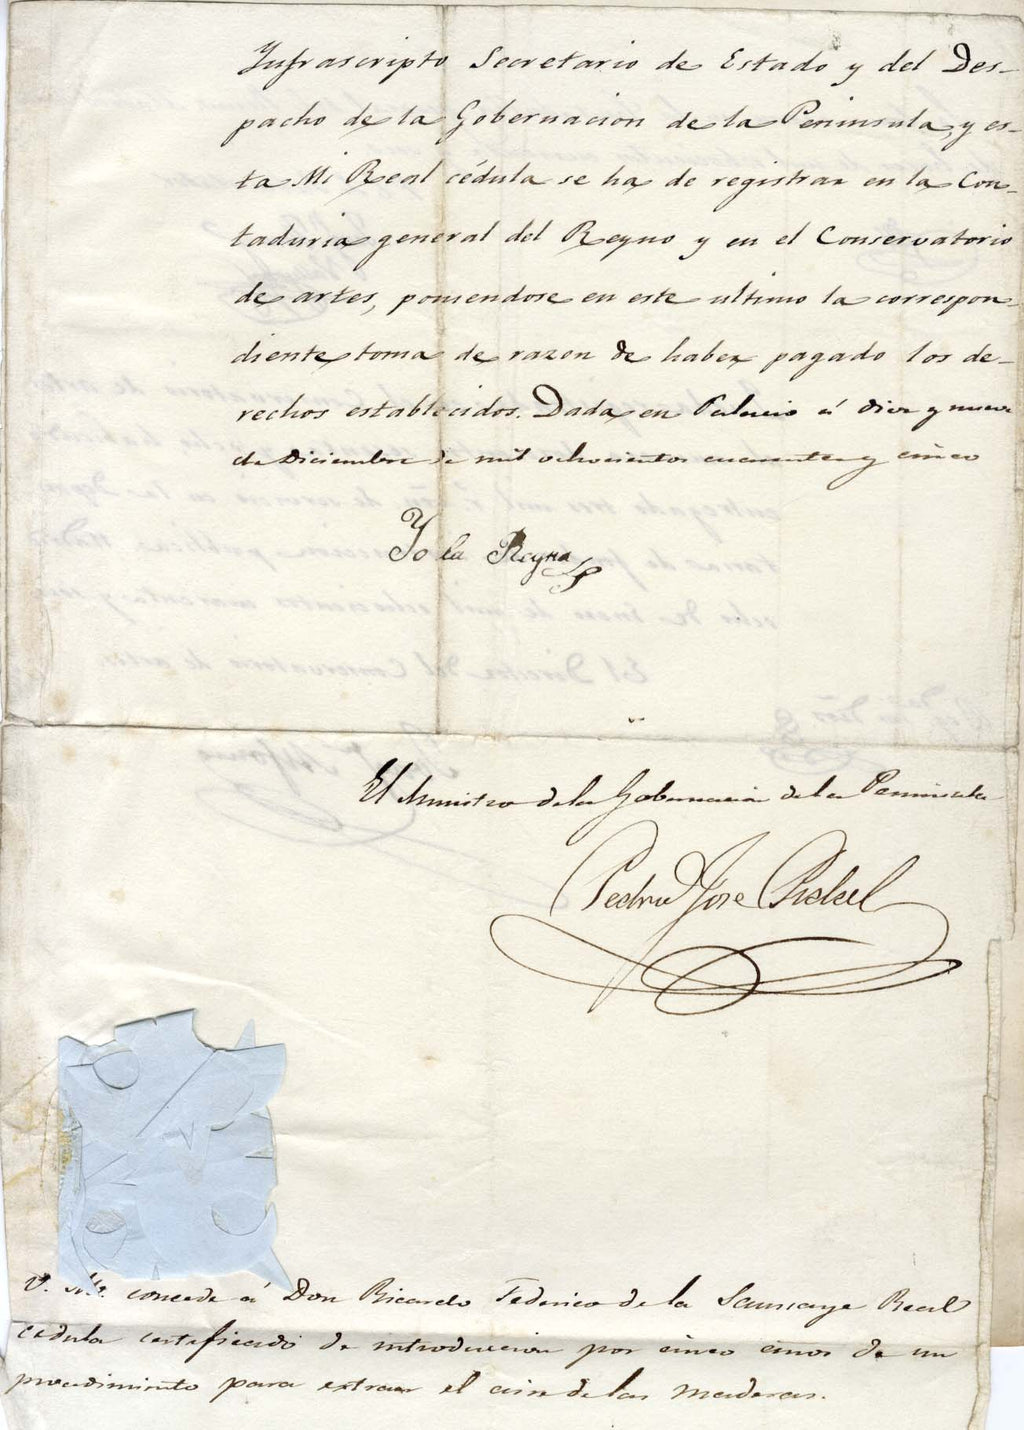 Infrascripto Secretario de Estado y del Des-
pacho de la Gobernacion de la Peninsula, y es-
ta Mi Real cédula se ha de registrar en la Con-
taduria general del Reyno y en el Conservatorio
de artes, poniendose en este ultimo la correspon-
diente toma de razon de haber pagado los de-
rechos establecidos. Dada en Palacio á diez y nueve
de Diciembre de mil ochocientos cuarenta y cinco
Yo la Reyna
El Ministro de la Gobernacion de la Peninsula
Pedro José Pidal
V. M. concede á Don Ricardo Federico de la Saussaye Real
cedula certificado de introduccion por cinco años de un
procedimiento para extraer el aire de las maderas.